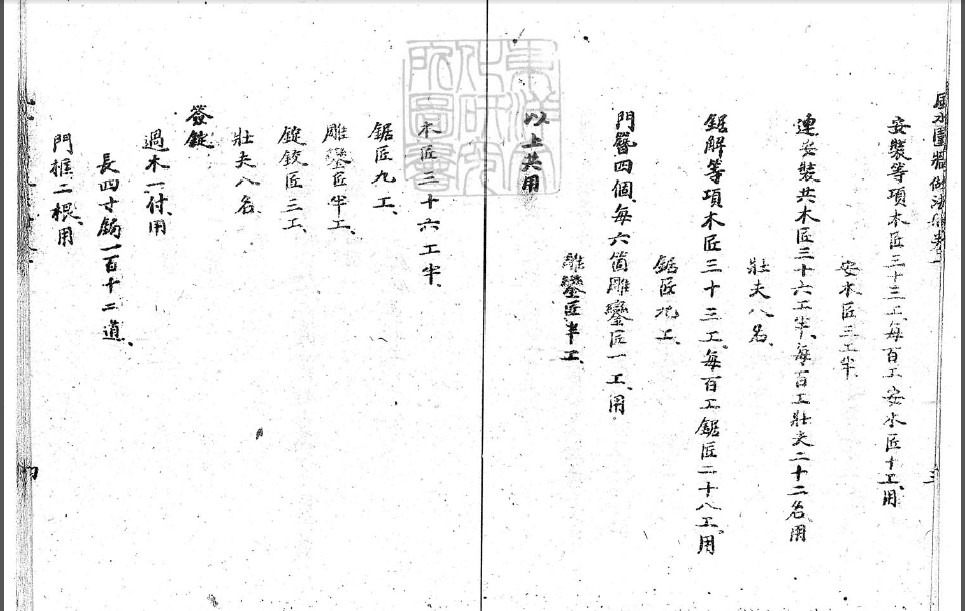 風水圍牆做法
三
安裝等項木匠三十三工、每百工安木匠十工、用
安木匠三工半、
連安裝共木匠三十六工半、每百工壯夫二十二名用
壯夫八名、
鋸解等項木匠三十三工、每百工鋸匠二十八工、用
鋸匠九工、
門簪四個、每六箇雕鑾匠一工、用
雕鑾匠半工、
以上共用
東洋文
化研究
所圖書
木匠三十六工半、
鋸匠九工、
雕鑾匠半工、
錠鉸匠三工、
壯夫八名
簽錠
過木一付、用
長四寸鋦一百十二道、
門框二根、用
四